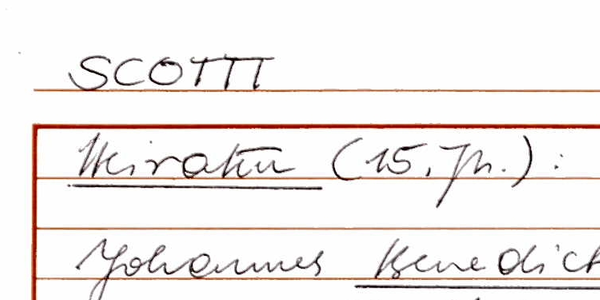 SCOTTI
Heiraten (15. Jh.):
Johannes Benedict